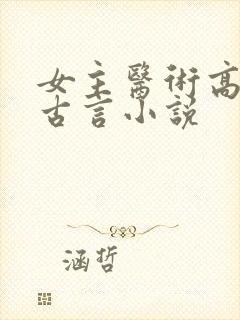 女主醫術高
古言小說
涵哲